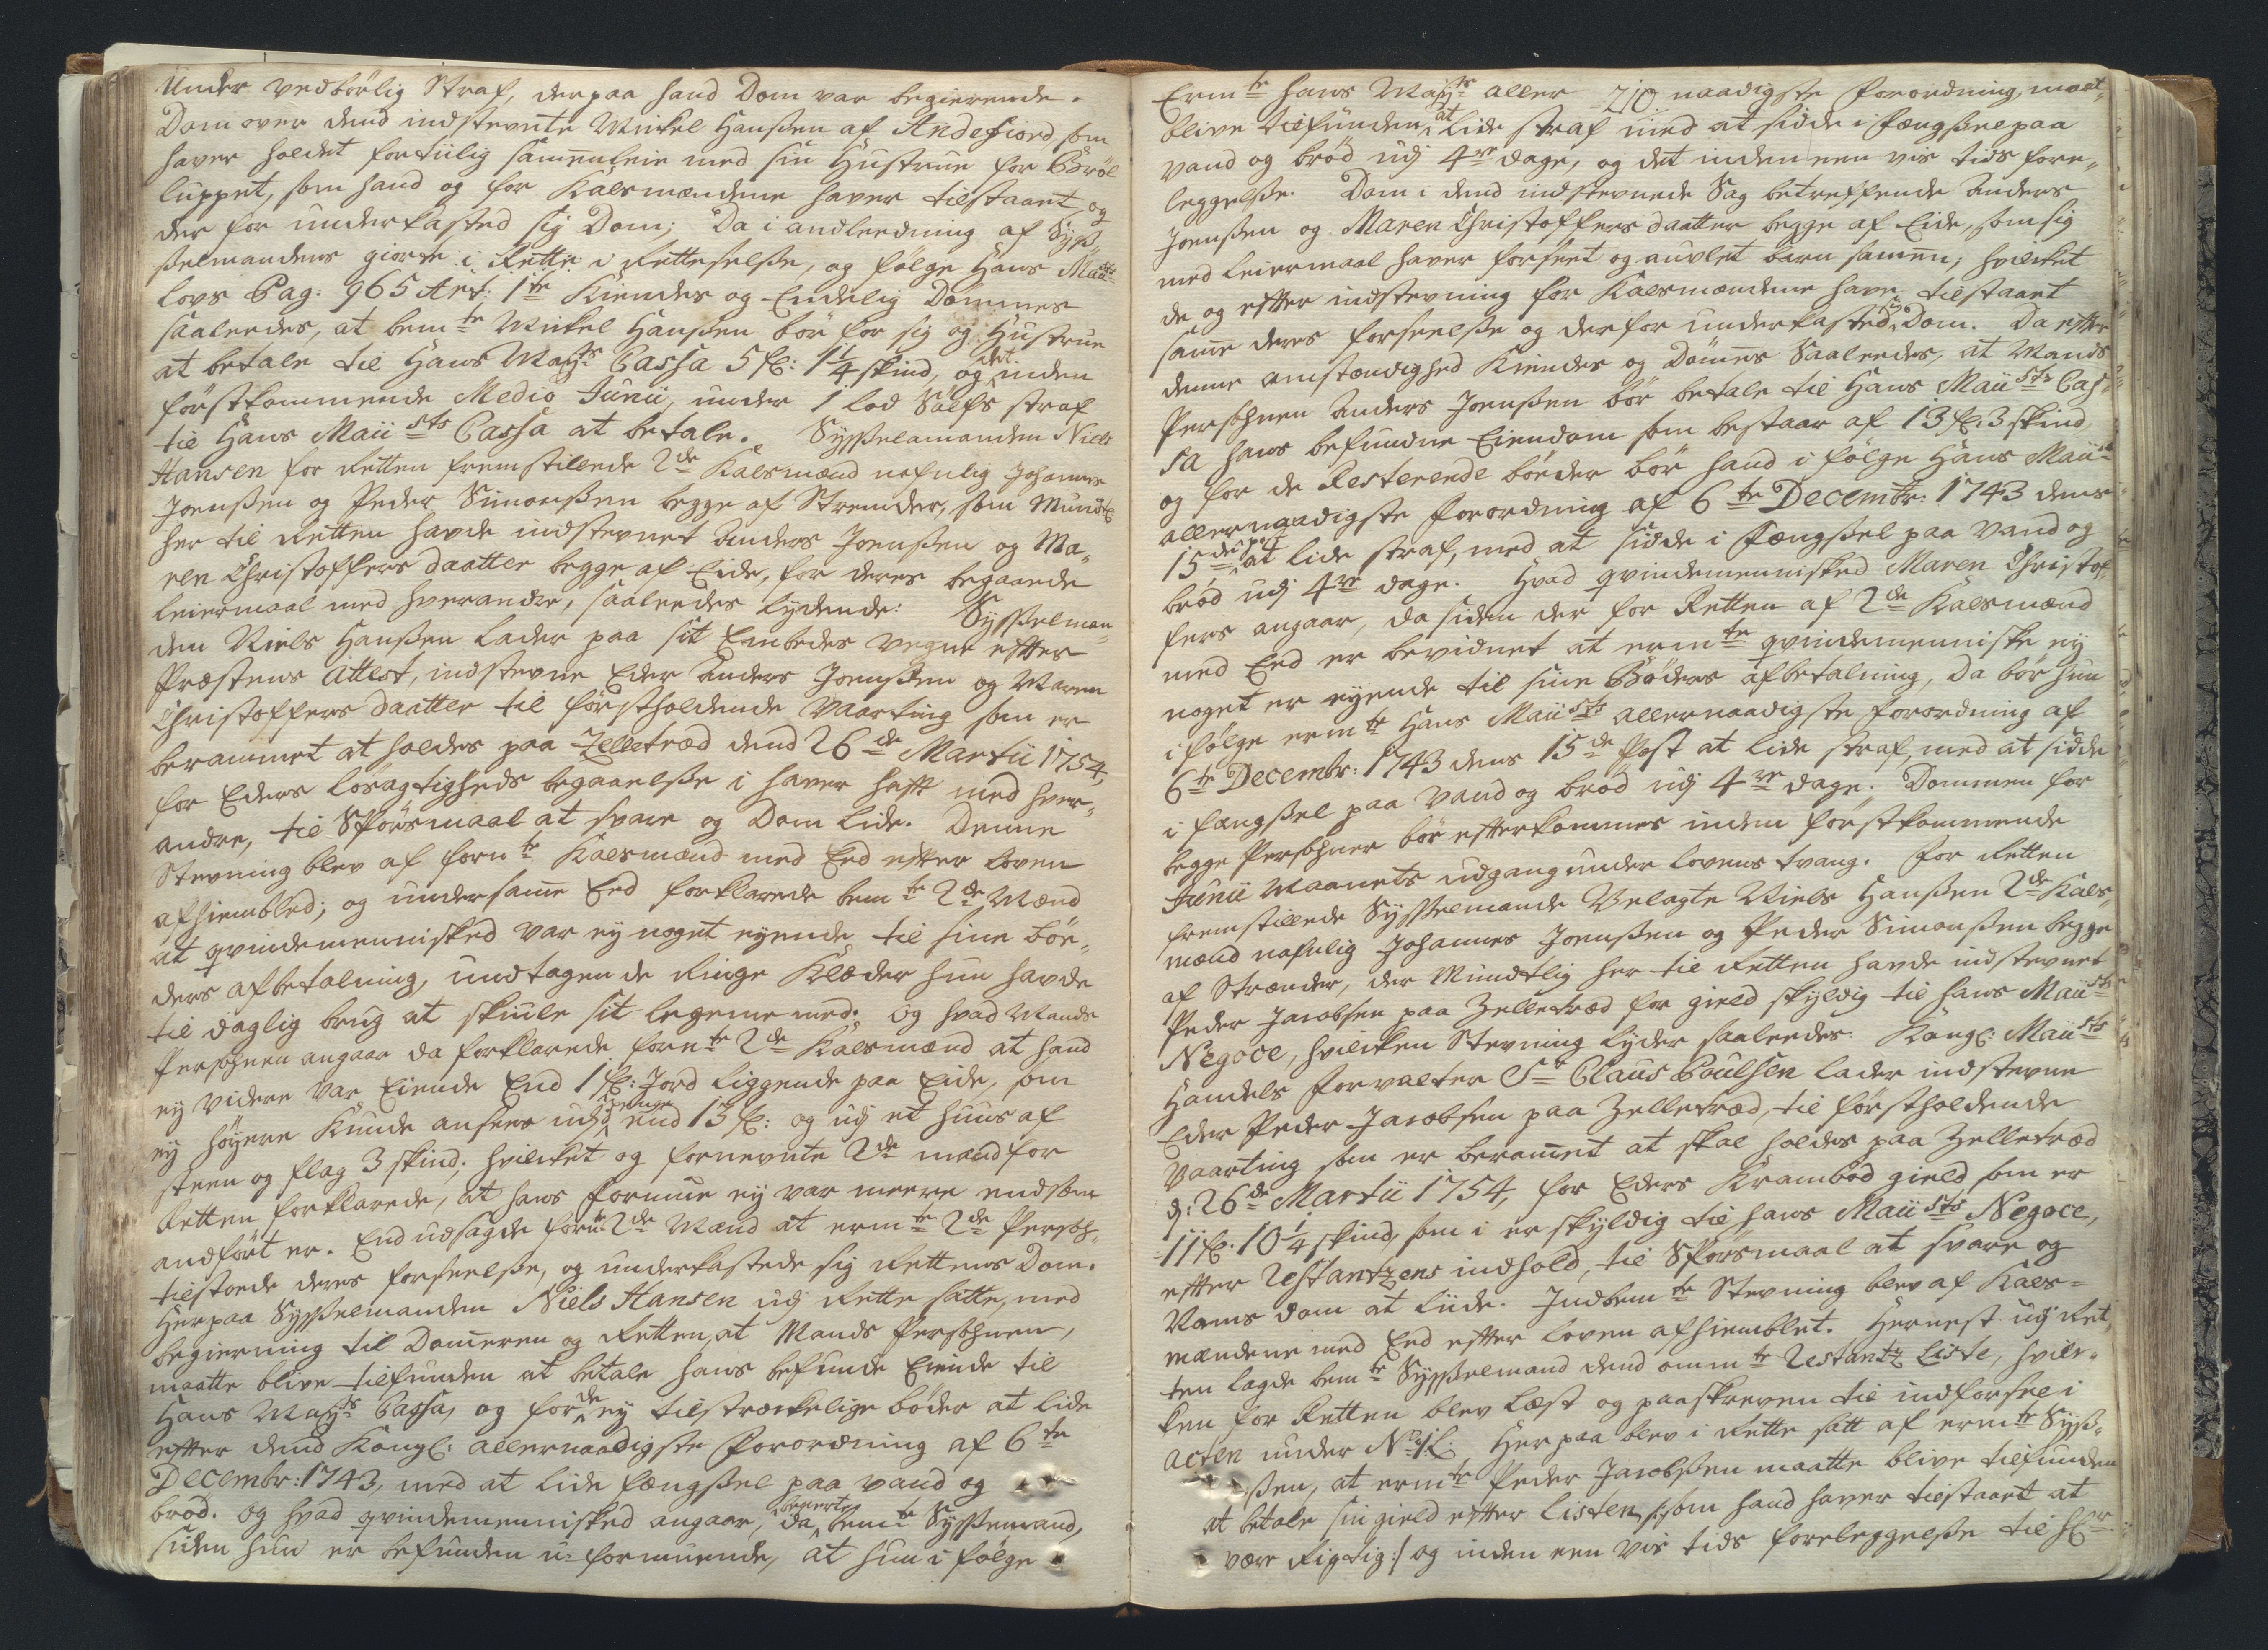 Under vedbörlig Straf, derpaa hand Dom var begierende.
Dom over dend indstevnte Mickel Hanßen af Andefiord, som
haver holdet fortiilig sammenleie med sin Hustrue för Bröl
luppet, som hand og for Kalsmændene haver tilstaaet, og
der for underkasted sig Dom; Da i andleedning af Syß¸
ßelmandens giorte i Rette i Retteselße, og følge Hans May¸
Lovs Pag: 965 Art: 1te Kiendes og Endelig Dömmes
saaleedes, at bemte Mickel Hanßen bör for sig og Hustrue
at betale til Hans Mayts Cassa 5 fl: 1 1/4 skind, og det inden
förstkommende Medio Junii, under 1 lod Sölfs straf
til Hans Maiists Cassa at betale. Sysselmanden Niels
Hansen for Retten fremstillede 2de Kalsmænd nafnlig Johannes
Joenßen og Peder Simonßen begge af Strender, som Mundtl:
her til Retten havde indstevnet Anders Joenßen og Ma¸
ren Christoffers daatter begge af Eide, for deres begaaede
Leiermaal med hverandre, saaleedes lydende: Sysselman¸
den Niels Hanßen lader paa sit Embedes vegne efter
Præstens Attest, indstevne Eder Anders Joenßen og Maren
Christoffers daatter til förstholdende Vaarting som er
berammet at holdes paa Zelletræd dend 26de Martii 1754,
for Eders lösagtigheds begaaelße i haver haft med hver¸
andre, til Spörsmaal at svare og Dom lide. Denne
Stevning blev af fornte Kalsmænd med Eed efter loven
afhiemblet; og under samme Eed forklarede bemte 2de Mænd
at qvindemennisked var ey noget eyende til sine bö¸
ders afbetalning, undtagen de Ringe Klæder hun havde
til daglig brug at skiule sit legeme med. og hvad Mands
Persohnen angaar da forklarede fornte 2de Kalsmænd at hand
ey videre var Eiende End 1 fl: Jord liggende paa Eide, som
ey höyere Kunde ansees udi penge end 13 fl: og udj et huus af
steen og flag 3 skind; hvilcket og fornevnte 2de mænd for
Retten forklarede, at hans formue ey var meere end som
andfört er. End udsagde fornte 2de Mænd at ermte 2de Persoh¸
tilstoede deres forseelße, og underkastede sig Rettens Dom.
Herpaa Sysselmanden Niels Hansen udj Rette satte, med
begiering til Dommeren og Retten, at Mands Persohnen,
maatte blive tilfunden at betale hans befundne Eiende til
Hans Mayts Cassa, og for de ey tilstreckelige böder at lide
efter dend Kongl: allernaadigste Forordning af 6te
Decembr: 1743, med at lide fængßel paa vand og
bröd. og hvad qvindemennisked angaar, da begierte bemte Sysselmand,
siden hun er befunden u-formuende, at hun i følge
210
Ermte Hans Mayts aller naadigste Forordning, maatte
blive tilfunden at lide straf med at sidde i fængßel paa
vand og bröd udj 4re dage, og det inden een vis tids fore¸
leggelße. Dom i dend indstevnede Sag betreffende Anders
Joenßen og Maren Christoffers daatter begge af Eide, som sig
med Leiermaal haver forseet og auvlet barn sammen, hvilcket
de og efter indstevning for Kalsmændene have tilstaaet
samme deres forseelße og derfor underkasted sig Dom. Da efter
denne omstændighed Kiendes og Dömmes Saaleedes, at Mands
Persohnen Anders Joenßen bör betale til Hans Maiists Cas¸
sa hans befundne Eiendom som bestaar af 13 fl: 3 skind,
og for de Resterende böeder bör hand i følge Hans Maiists
allernaadigste Forordning af 6te Decembr: 1743 dens
15de post at lide straf, med at sidde i fængßel paa vand og
bröd udj 4re dage. Hvad qvindemennisked Maren Christof¸
fers angaar, da siden der for Retten af 2de Kalsmænd
med Eed er bevidnet at ermte qvindemenniske ey
noget er eyende til sine Böders afbetalning, da bör hun
i følge ermte Hans Maiists allernaadigste Forordning af
6te Decembr: 1743 dens 15de Post at lide straf, med at sidde
i fængßel paa vand og bröd udj 4re dage. Dommen for
begge Persohner bör efterkommes inden förstkommende
Junii Maanets udgang under lovens tvang. For Retten
fremstillede Sysselmand Velagte Niels Hanßen 2de Kals¸
mænd nafnlig Johannes Joenßen og Peder Simonßen begge
af Strænder, der Mundtlig her til Retten havde indstevnet
Peder Jacobsen paa Zelletræd for gield skyldig til Hans Maiists
Negoce, hvilcken Stevning lyder saaleedes: Kongl: Maiists
Handels Forvalter Sr Claus Poulsen lader indstevne
Eder Peder Jacobsen paa Zelletræd, til förstholdende
Vaarting som er berammet at skal holdes paa Zelletræd
d: 26de Martii 1754, for Eders Krambod gield som er
11 fl: 10 1/4 skind, som i er skyldig til Hans Maiists Negoce,
efter Restantzens indhold, til Spörsmaal at svare og
Vams dom at liide. Indbemte Stevning blev af Kals=
mændene med Eed efter loven afhiemblet. Hernest udj Ret¸
ten lagde bemte Sysselmand dend ommte Restantz Liste, hvilc¸
ken for Retten blev læst og paaskreven til indförsel i
acten under No 1 L: Her paa blev i Rette satt af ermte Syß¸
ßen, at ermte Peder Jacobßen maatte blive tilfunden
at betale sin gield efter Listen /: som hand haver tilstaaet at
være Rigtig :/ og inden een vis tids foreleggelße til Hr